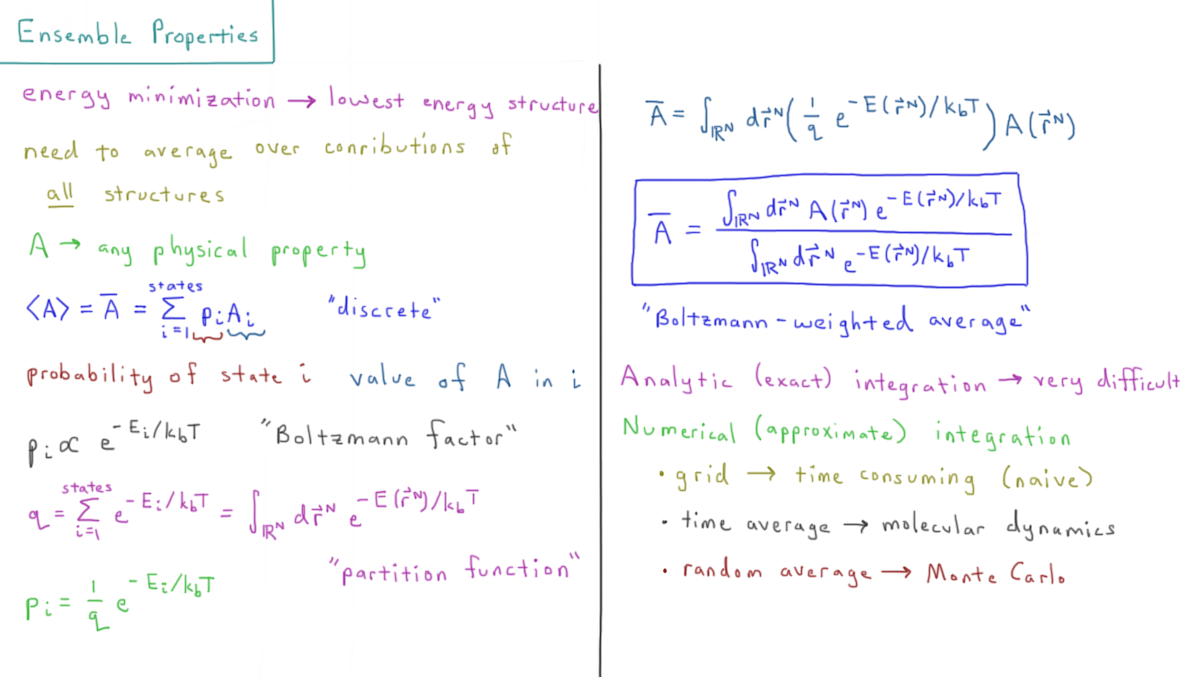 Ensemble Properties
energy minimization → lowest energy structure
need to average over conributions of
all structures
A → any physical property
⟨A⟩ = A̅ = Σ_{i=1}^{states} p_i A_i "discrete"
probability of state i value of A in i
p_i ∝ e^{-E_i/k_bT} "Boltzmann factor"
q = Σ_{i=1}^{states} e^{-E_i/k_bT} = ∫_{ℝN} dr⃗^N e^{-E(r⃗^N)/k_bT}
"partition function"
p_i = 1/q e^{-E_i/k_bT}
A̅ = ∫_{ℝN} dr⃗^N (1/q e^{-E(r⃗^N)/k_bT}) A(r⃗^N)
A̅ = ∫_{ℝN} dr⃗^N A(r⃗^N) e^{-E(r⃗^N)/k_bT} / ∫_{ℝN} dr⃗^N e^{-E(r⃗^N)/k_bT}
"Boltzmann-weighted average"
Analytic (exact) integration → very difficult
Numerical (approximate) integration
• grid → time consuming (naive)
• time average → molecular dynamics
• random average → Monte Carlo